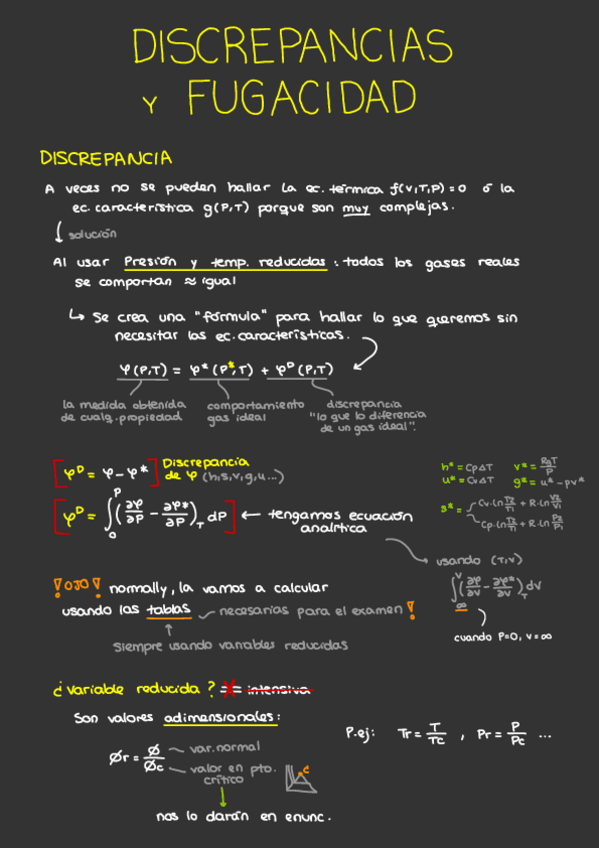 DISCREPANCIAS
Y FUGACIDAD
DISCREPANCIA
A veces no se pueden hallar la ec. térmica f(v,T,P) = 0 ó la
ec. característica g(P,T) porque son muy complejas.
↓ solución
Al usar Presión y temp. reducidas : todos los gases reales
se comportan ≈ igual
↳ Se crea una "fórmula" para hallar lo que queremos sin
necesitar las ec. características.
φ(P,T) = φ*(P*,T) + φᴰ(P,T)
la medida obtenida
de cualq. propiedad
comportamiento
gas ideal
discrepancia
"lo que lo diferencia
de un gas ideal".
[φᴰ = φ - φ*] Discrepancia
de φ (h,s,v,g,u...)
[φᴰ = ∫₀ᴾ (∂φ/∂P - ∂φ*/∂P)_T dP] ← tengamos ecuación
analítica
h* = CpΔT v* = RgT/P
u* = CvΔT g* = u* - pv*
s* = Cv·Ln T2/T1 + R·Ln V2/V1
Cp·Ln T2/T1 + R·Ln P2/P1
usando (T,V)
∫∞ⱽ (∂φ/∂v - ∂φ*/∂v)_T dv
cuando P=0, v=∞
¡OJO! normally, la vamos a calcular
usando las tablas — necesarias para el examen!
↑
Siempre usando variables reducidas
¿Variable reducida? == intensiva
Son valores adimensionales:
Ør = Ø/Øc
var. normal
valor en pto.
crítico
c
↓
nos lo darán en enunc.
P.ej: Tr = T/Tc , Pr = P/Pc ...